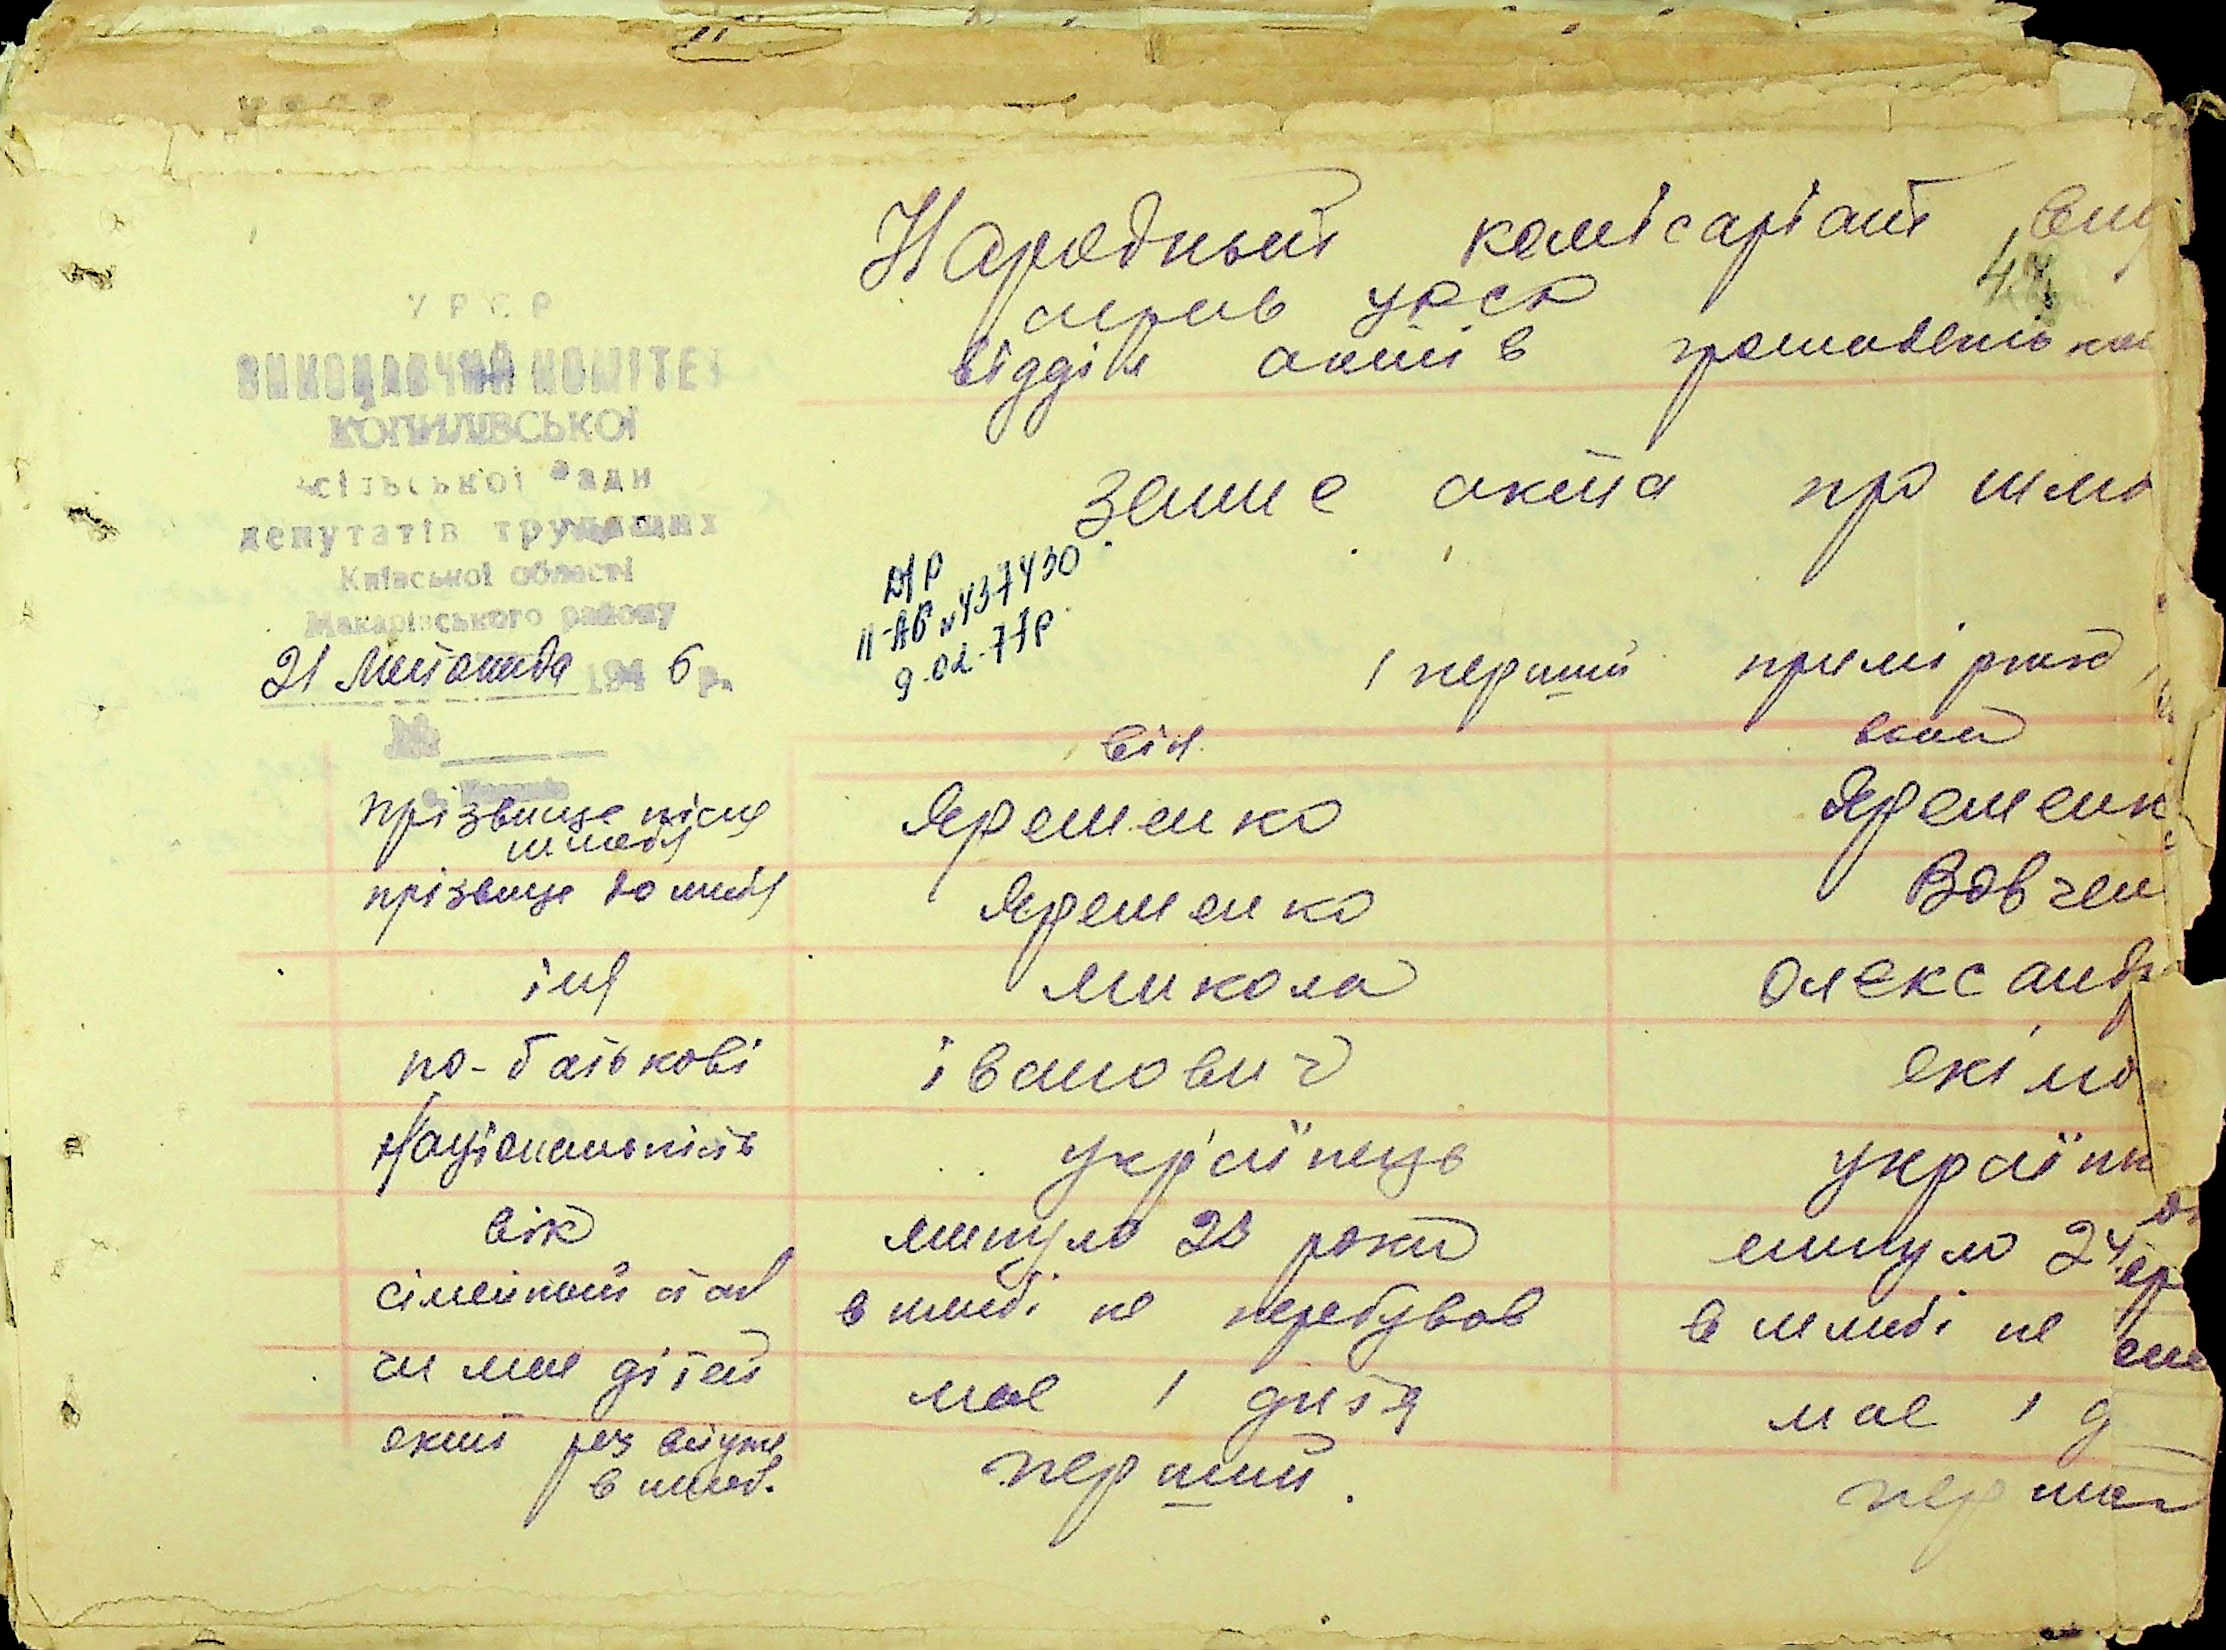 Народный комісаріат вну
справ УРСР
відділ актів громадянськ
47
запис акта про шлю
УРСР
ВИКОНАВЧИЙ КОМІТЕТ
КОПИЛІВСЬКОЇ
сільської Ради
депутатів трудящих
Київської області
Макарівського району
21 листопада 1946 р.
№
ІІ-АБ №437430
9.02.77р.
1 перший примірник
він вона
прізвище після шлюбу Яременко Яременк
прізвище до шлюбу Яременко Вовчен
імя микола Олександра
по-батькові іванович екімо
Національність українець українк
вік минуло 23 роки минуло 24
сімейний стан в шлюбі не перебував в шлюбі не
чи має дітей має 1 дитя має 1 д
який раз вступає в шлюб. перший. перший